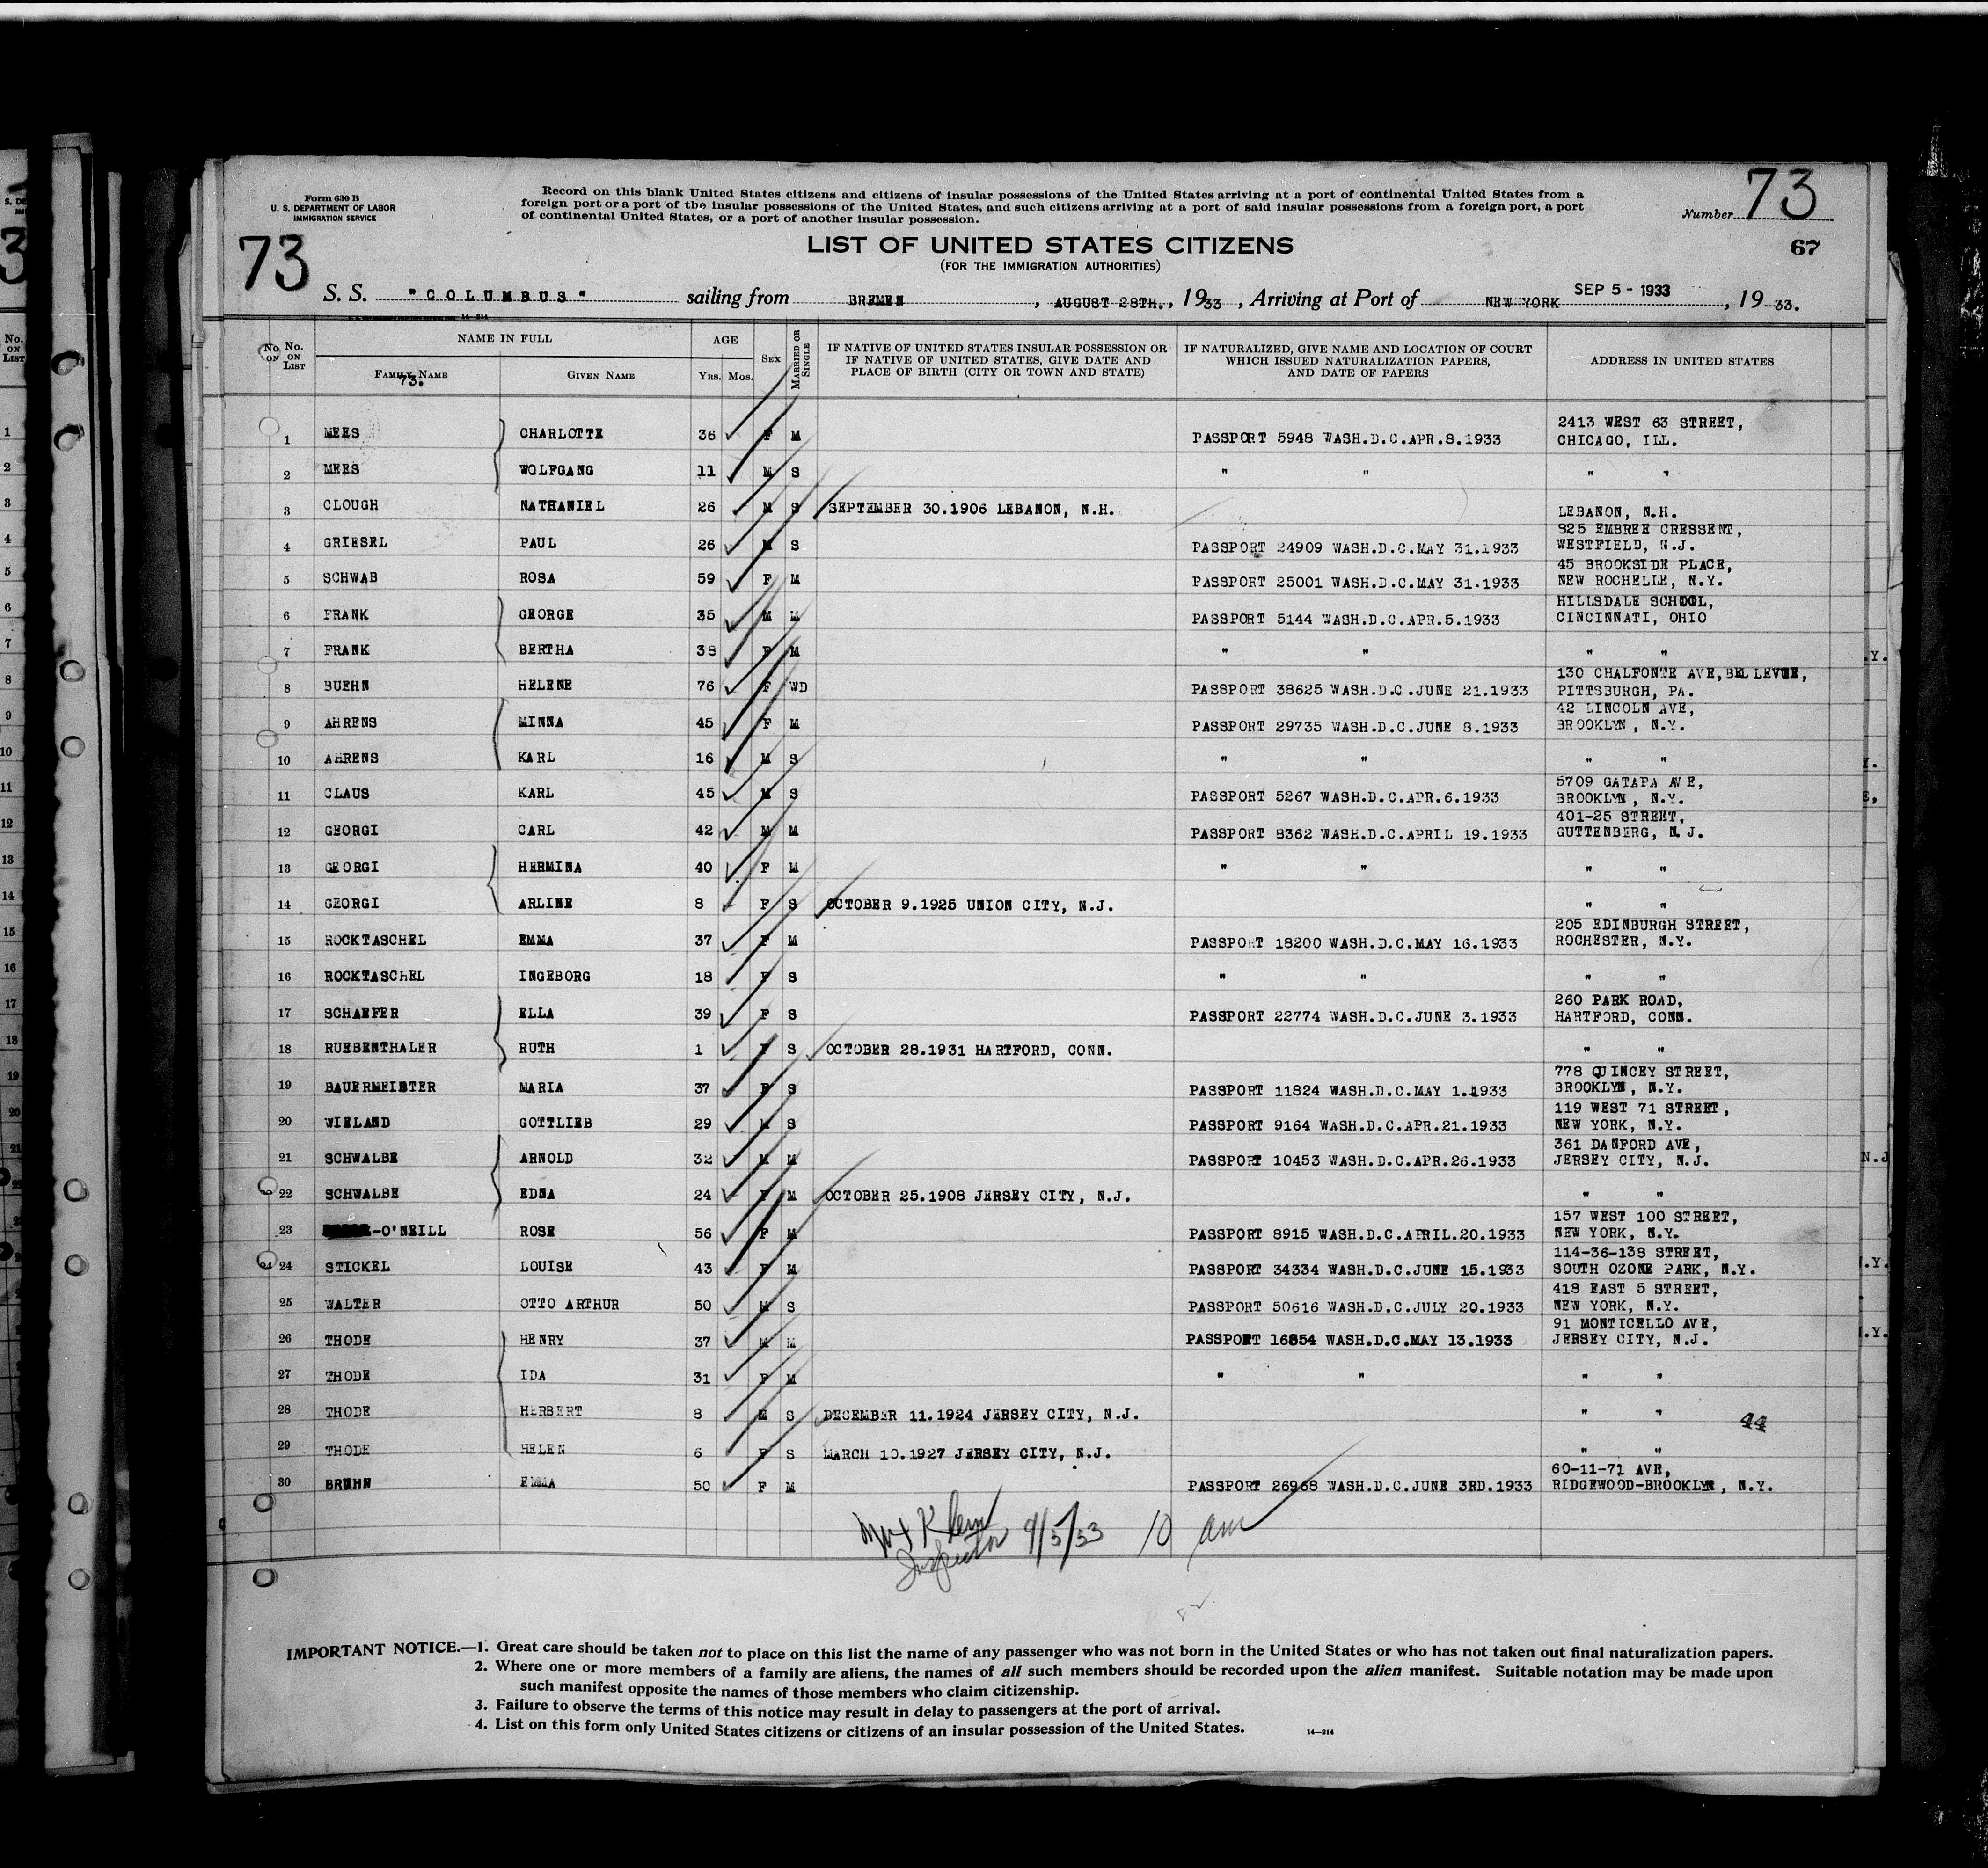 Form 630 B
U. S. DEPARTMENT OF LABOR
IMMIGRATION SERVICE
Record on this blank United States citizens and citizens of insular possessions of the United States arriving at a port of continental United States from a
foreign port or a port of the insular possessions of the United States, and such citizens arriving at a port of said insular possessions from a foreign port, a port
of continental United States, or a port of another insular possession.
Number 73
73
LIST OF UNITED STATES CITIZENS
(FOR THE IMMIGRATION AUTHORITIES)
67
S. S. "COLUMBUS" sailing from BREMEN, AUGUST 28TH., 1933, Arriving at Port of NEW YORK SEP 5 - 1933, 1933.
14-214
No. on List NAME IN FULL AGE Sex Married or Single IF NATIVE OF UNITED STATES INSULAR POSSESSION OR IF NATIVE OF UNITED STATES, GIVE DATE AND PLACE OF BIRTH (CITY OR TOWN AND STATE) IF NATURALIZED, GIVE NAME AND LOCATION OF COURT WHICH ISSUED NATURALIZATION PAPERS, AND DATE OF PAPERS ADDRESS IN UNITED STATES
Family Name Given Name Yrs. Mos.
73.
1 MEES CHARLOTTE 36 F M PASSPORT 5948 WASH.D.C.APR.8.1933 2413 WEST 63 STREET, CHICAGO, ILL.
2 MEES WOLFGANG 11 M S " " " "
3 CLOUGH NATHANIEL 26 M S SEPTEMBER 30.1906 LEBANON, N.H. LEBANON, N.H.
4 GRIESEL PAUL 26 M S PASSPORT 24909 WASH.D.C.MAY 31.1933 825 EMBREE CRESSENT, WESTFIELD, N.J.
5 SCHWAB ROSA 59 F M PASSPORT 25001 WASH.D.C.MAY 31.1933 45 BROOKSIDE PLACE, NEW ROCHELLE, N.Y.
6 FRANK GEORGE 35 M M PASSPORT 5144 WASH.D.C.APR.5.1933 HILLSDALE SCHOOL, CINCINNATI, OHIO
7 FRANK BERTHA 38 F M " " " "
8 BUEHN HELENE 76 F WD PASSPORT 38625 WASH.D.C.JUNE 21.1933 130 CHALFONTE AVE, BELLEVUE, PITTSBURGH, PA.
9 AHRENS MINNA 45 F M PASSPORT 29735 WASH.D.C.JUNE 8.1933 42 LINCOLN AVE, BROOKLYN, N.Y.
10 AHRENS KARL 16 M S " " " "
11 CLAUS KARL 45 M S PASSPORT 5267 WASH.D.C.APR.6.1933 5709 GATAPA AVE, BROOKLYN, N.Y.
12 GEORGI CARL 42 M M PASSPORT 8362 WASH.D.C.APRIL 19.1933 401-25 STREET, GUTTENBERG, N.J.
13 GEORGI HERMINA 40 F M " " " "
14 GEORGI ARLINE 8 F S OCTOBER 9.1925 UNION CITY, N.J. " "
15 ROCKTASCHEL EMMA 37 F M PASSPORT 18200 WASH.D.C.MAY 16.1933 205 EDINBURGH STREET, ROCHESTER, N.Y.
16 ROCKTASCHEL INGEBORG 18 F S " " " "
17 SCHAEFER ELLA 39 F S PASSPORT 22774 WASH.D.C.JUNE 3.1933 260 PARK ROAD, HARTFORD, CONN.
18 RUEBENTHALER RUTH 1 F S OCTOBER 28.1931 HARTFORD, CONN. " "
19 BAUERMEISTER MARIA 37 F S PASSPORT 11824 WASH.D.C.MAY 1.1933 778 QUINCEY STREET, BROOKLYN, N.Y.
20 WIELAND GOTTLIEB 29 M S PASSPORT 9164 WASH.D.C.APR.21.1933 119 WEST 71 STREET, NEW YORK, N.Y.
21 SCHWALBE ARNOLD 32 M M PASSPORT 10453 WASH.D.C.APR.26.1933 361 DANFORD AVE, JERSEY CITY, N.J.
22 SCHWALBE EDNA 24 F M OCTOBER 25.1908 JERSEY CITY, N.J. " "
23 -O'NEILL ROSE 56 F M PASSPORT 8915 WASH.D.C.APRIL.20.1933 157 WEST 100 STREET, NEW YORK, N.Y.
24 STICKEL LOUISE 43 F M PASSPORT 34334 WASH.D.C.JUNE 15.1933 114-36-138 STREET, SOUTH OZONE PARK, N.Y.
25 WALTER OTTO ARTHUR 50 M S PASSPORT 50616 WASH.D.C.JULY 20.1933 418 EAST 5 STREET, NEW YORK, N.Y.
26 THODE HENRY 37 M M PASSPORT 16854 WASH.D.C.MAY 13.1933 91 MONTICELLO AVE, JERSEY CITY, N.J.
27 THODE IDA 31 F M " " " "
28 THODE HERBERT 8 M S DECEMBER 11.1924 JERSEY CITY, N.J. " "
44
29 THODE HELEN 6 F S MARCH 10.1927 JERSEY CITY, N.J. " "
30 BRUHN EMMA 50 F M PASSPORT 26968 WASH.D.C.JUNE 3RD.1933 60-11-71 AVE, RIDGEWOOD-BROOKLYN, N.Y.
Klein 9/5/33 10 am
Inspector
IMPORTANT NOTICE.—1. Great care should be taken not to place on this list the name of any passenger who was not born in the United States or who has not taken out final naturalization papers.
2. Where one or more members of a family are aliens, the names of all such members should be recorded upon the alien manifest. Suitable notation may be made upon
such manifest opposite the names of those members who claim citizenship.
3. Failure to observe the terms of this notice may result in delay to passengers at the port of arrival.
4. List on this form only United States citizens or citizens of an insular possession of the United States.
14—214